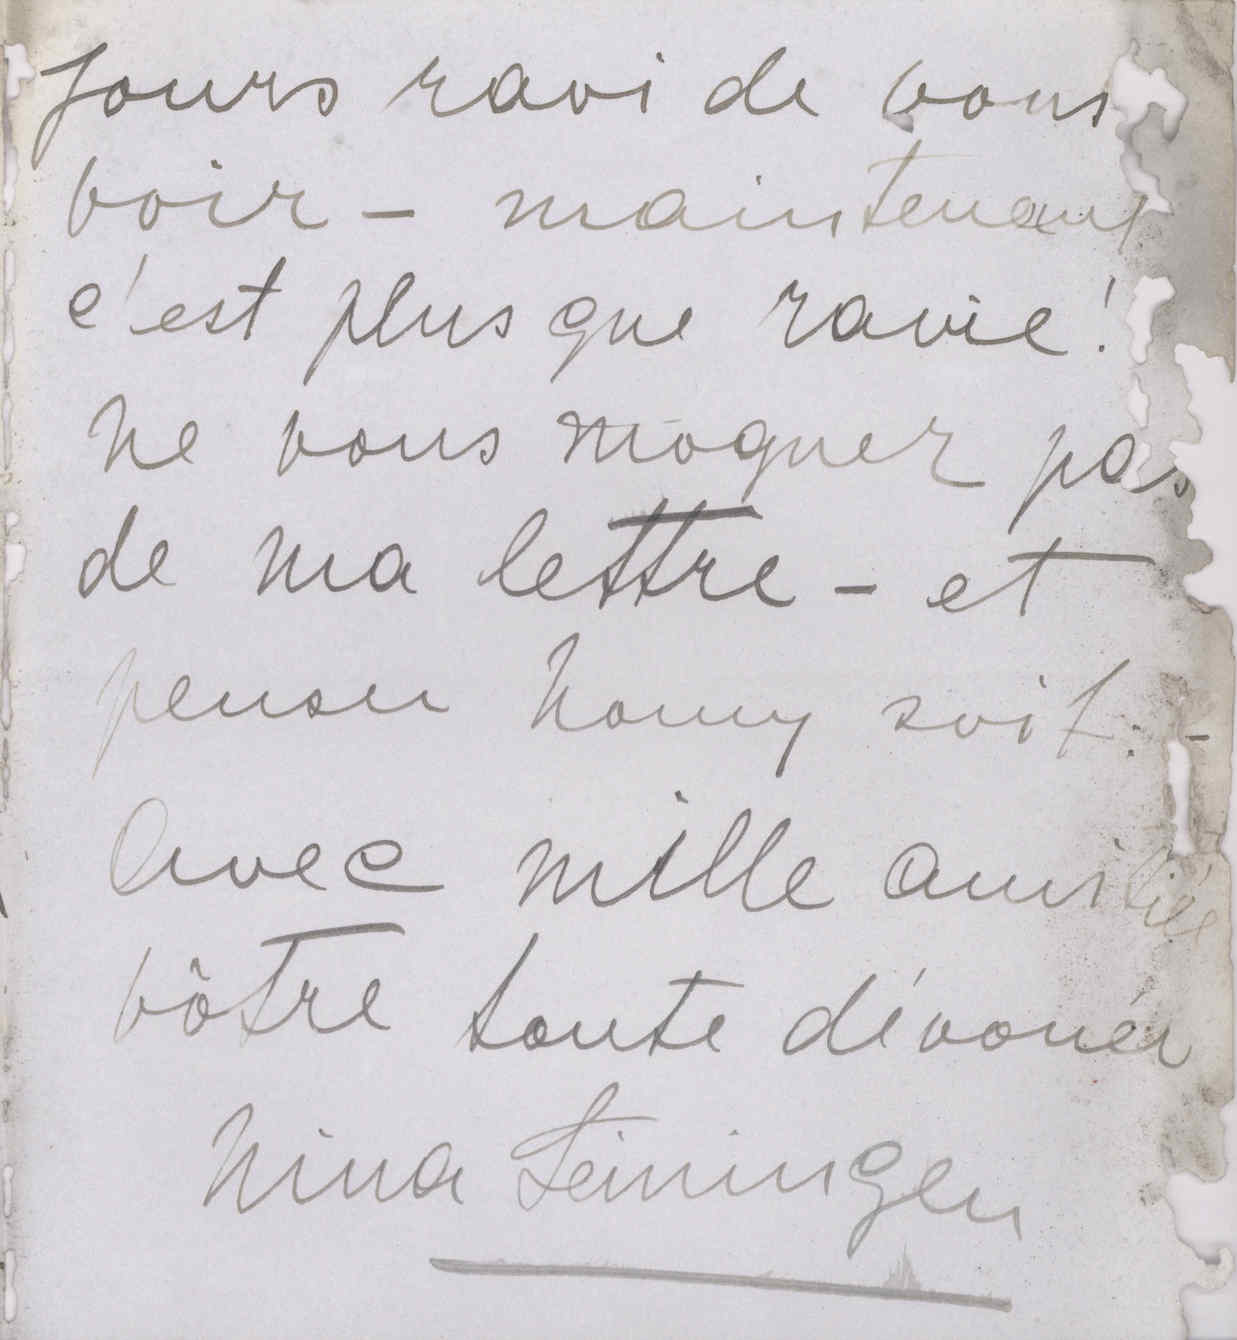 jours ravi de vous
voir - maintenant
c'est plus que ravie!
Ne vous moquer pas
de ma lettre - et
penser honny soit. -
Avec mille amitiés
vôtre toute dévouée
Nina Leiningen